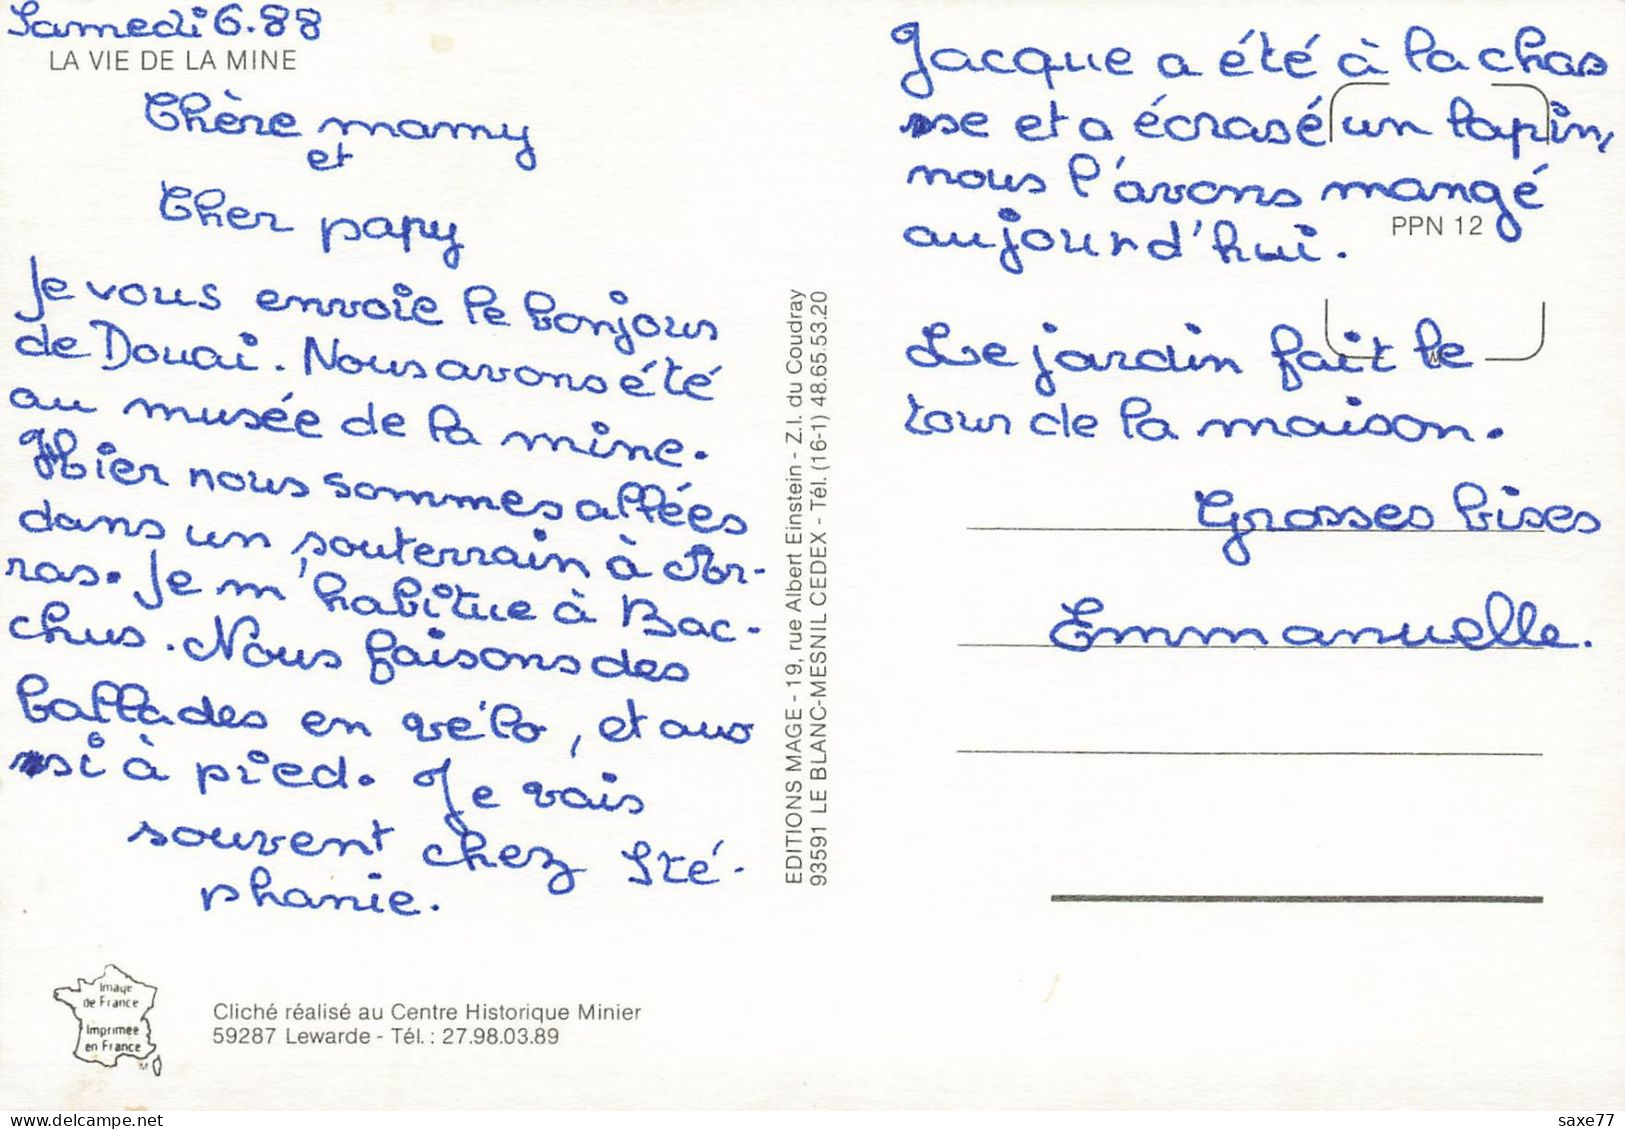 Samedi 6.88
LA VIE DE LA MINE
Chère mamy
et
Cher papy
Je vous envoie le bonjour
de Douai. Nous avons été
au musée de la mine.
Hier nous sommes allées
dans un souterrain à Ar-
ras. Je m'habitue à Bac-
chus. Nous faisons des
ballades en vélo, et aus
si à pied. Je vais
souvent chez Sté-
phanie.
Image
de France
Imprimée
en France
Cliché réalisé au Centre Historique Minier
59287 Lewarde - Tél. : 27.98.03.89
EDITIONS MAGE - 19, rue Albert Einstein - Z.I. du Coudray
93591 LE BLANC-MESNIL CEDEX - Tél. (16-1) 48.65.53.20
Jacque a été à la chas
se et a écrasé un lapin,
nous l'avons mangé
aujourd'hui.
PPN 12
Le jardin fait le
tour de la maison.
Grosses bises
Emmanuelle.
saxe77